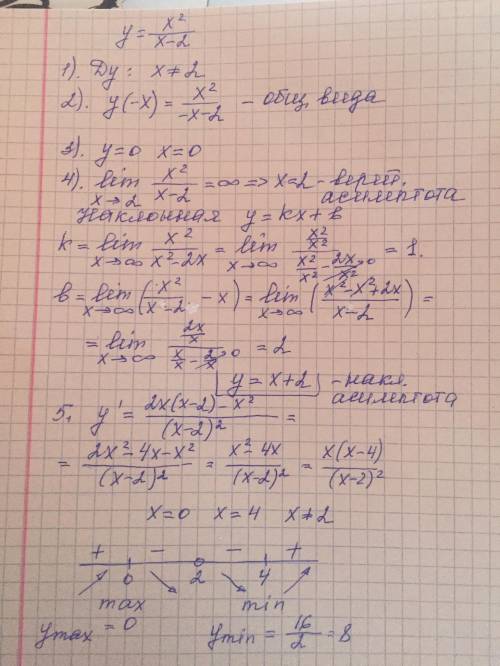 y = x²/(x-2)
1). Dy: x ≠ 2
2). y(-x) = x²/(-x-2) - общ. вида
3). y=0 x=0
4). lim x→2 x²/(x-2) = ∞ => x=2 - верт. асимптота
Наклонная y = kx + b
k = lim x→∞ x²/(x²-2x) = lim x→∞ (x²/x²)/(x²/x² - 2x/x²→0) = 1.
b = lim x→∞ (x²/(x-2) - x) = lim x→∞ ((x²-x²+2x)/(x-2)) =
= lim x→∞ (2x/x)/(x/x - 2/x→0) = 2
y = x+2 - накл. асимптота
5. y' = (2x(x-2) - x²)/(x-2)² =
= (2x²-4x-x²)/(x-2)² = (x²-4x)/(x-2)² = x(x-4)/(x-2)²
x=0 x=4 x≠2
+ - - +
0 2 4
max min
y max = 0 y min = 16/2 = 8